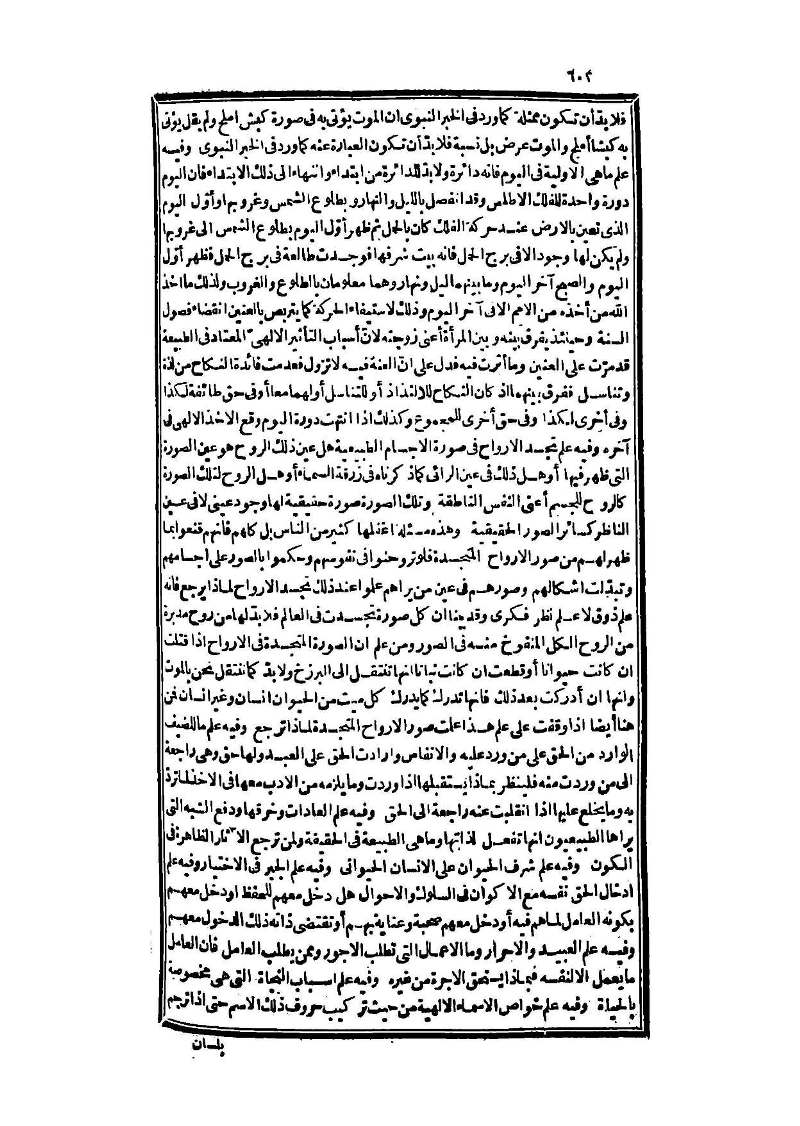 ٦٠٤
فلا بد أن تكون ممثلة كما ورد في الخبر النبوى ان الموت يؤتى به في صورة كبش املح ولم يقل يؤتى
به كبشا أملح والموت عرض بل نسبة فلا بد أن تكون العبارة عنه كما ورد في الخبر النبوى وفيه
علم ماهى الاولية في اليوم فانه دائرة ولا بد للدائرة من ابتداء وانتهاء الى ذلك الابتداء فان اليوم
دورة واحدة للفلك الاطلس وقد انفصل بالليل والنهار وبطلوع الشمس وغروبها وأول اليوم
الذى تعين بالارض عند حركة الفلك كان بالحمل ثم ظهر أول اليوم بطلوع الشمس الى غروبها
ولم يكن لها وجود الا في برج الحمل فانه بيت شرفها فوجدت طالعة في برج الحمل فظهر أول
اليوم والصبح آخر اليوم وما بينهما ليل ونهار وهما معلومان بالطلوع والغروب ولذلك ما اخذ
الله من أخذه من الامم الا في آخر اليوم وذلك لاستيفاء الحركة كما يتربص بالعنين انقضاء فصول
السنة وحينئذ يفرق بينه وبين المرأة أعنى زوجته لان أسباب التأثير الالهى المعتاد في الطبيعة
قد مرت على العنين وما أثرت فيه فدل على ان العنة فيه لا تزول فعدمت فائدة النكاح من لذة
وتناسل ففرق بينهما اذ كان النكاح للالتذاذ أو للتناسل أو لهما معا أو في حق طائفة لكذا
وفى أخرى لكذا وفى حق أخرى للمجموع وكذلك اذا انتهت دورة اليوم وقع الاخذ الالهى في
آخره وفيه علم تجسد الارواح في صورة الاجسام الطبيعية هل عين ذلك الروح هو عين الصورة
التى ظهر فيها أو هل ذلك في عين الرائى كما ذكرناه في زرقة السماء أو هل الروح لتلك الصورة
كالروح للجسم أعنى النفس الناطقة وتلك الصورة صورة حقيقية لها وجود عينى لا في عين
الناظر كسائر الصور الحقيقية وهذه مسئلة اغفلها كثير من الناس بل كلهم فانهم قنعوا بما
ظهر لهم من صور الارواح المتجسدة فلو تروحنوا في نفوسهم وحكموا بالصور على أجسامهم
وتبدلت اشكالهم وصورهم في عين من يراهم علموا عند ذلك تجسد الارواح لماذا يرجع فانه
علم ذوق لا علم نظر فكرى وقد بينا ان كل صورة تجسدت في العالم فلا بد لها من روح مدبرة
من الروح الكل المنفوخ منه في الصور ومن علم ان الصورة المتجسدة في الارواح اذا قتلت
ان كانت حيوانا أو قطعت ان كانت نباتا انها تنتقل الى البرزخ ولا بد كما ننتقل نحن بالموت
وانها ان أدركت بعد ذلك فانها تدرك كما يدرك كل ميت من الحيوان انسان وغير انسان فمن
هنا أيضا اذا وقفت على علم هذا علمت صور الارواح المتجسدة لماذا ترجع وفيه علم ماللضيف
الوارد من الحق على من ورد عليه والانفاس وارادت الحق على العبد ولها حق وهى راجعة
الى من وردت منه فلينظر بماذا يستقبلها اذا وردت وما يلزمه من الادب معها في الاخذ لما ترد
به وما يخلع عليها اذا انقلبت عنه راجعة الى الحق وفيه علم العادات وخرقها ودفع الشبه التى
يراها الطبيعيون انها تفعل لذاتها وماهى الطبيعة في الحقيقة ولمن ترجع الآثار الظاهرة في
الكون وفيه علم شرف الحيوان على الانسان الحيوانى وفيه علم الجبر في الاختيار وفيه علم
ادخال الحق نفسه مع الاكوان في السلوك والاحوال هل دخل معهم للحفظ أو دخل معهم
بكونه العامل لما هم فيه أو دخل معهم صحبة وعناية بهم أو تقتضى ذاته ذلك الدخول معهم
وفيه علم العبيد والاحرار وما الاعمال التى تطلب الاجور وممن يطلب العامل فان العامل
ما يعمل الا لنفسه فبماذا يستحق الاجرة من غيره وفيه علم اسباب النجاة التى هى مخصوصة
بالحياة وفيه علم خواص الاسماء الالهية من حيث تركيب حروف ذلك الاسم حتى اذا ترجم
بلسان